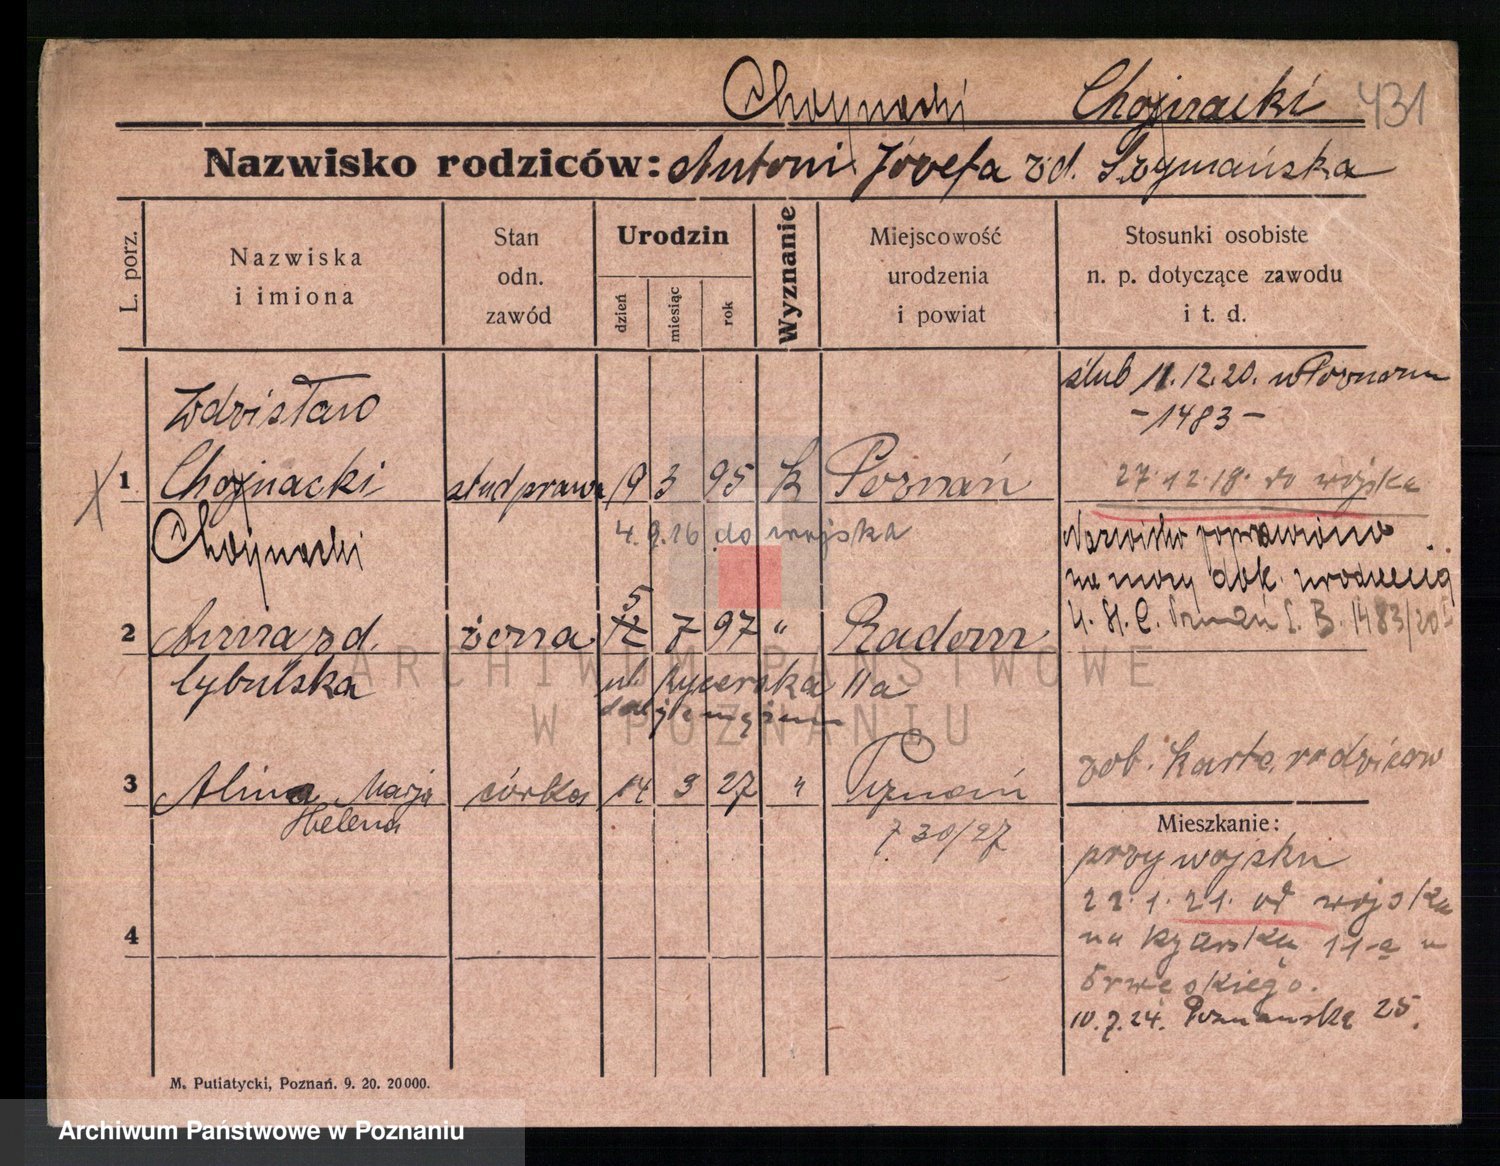 Choynacki Chojnacki 431
Nazwisko rodziców: Antoni Józefa zd. Szymańska
L. porz.
Nazwiska
i imiona
Stan
odn.
zawód
Urodzin
dzień
miesiąc
rok
Wyznanie
Miejscowość
urodzenia
i powiat
Stosunki osobiste
n. p. dotyczące zawodu
i t. d.
Zdzisław
1 Chojnacki stud prawa 19 3 95 k Poznań
Choynacki
4.9.16 do wojska
ślub 11.12.20. w Poznaniu
-1483-
27.12.18. do wojska
Nazwisko poprawiono
na mocy dok. urodzenia
U. St. C. Poznań L. B. 1483/20
5
2 Anna zd. żona 12 7 97 " Radom
Cybulska
ul. Rycerska 11a
3 Alina Marja córka 14 3 27 " Poznań
Helena
730/27
zob. karta rodziców
Mieszkanie:
przy wojsku
22.1.21. od wojska
na Rycerską 11-a u
10.7.24. Poznańska 25.
4
M. Putiatycki, Poznań. 9. 20. 20000.
ARCHIWUM PAŃSTWOWE
W POZNANIU
Archiwum Państwowe w Poznaniu